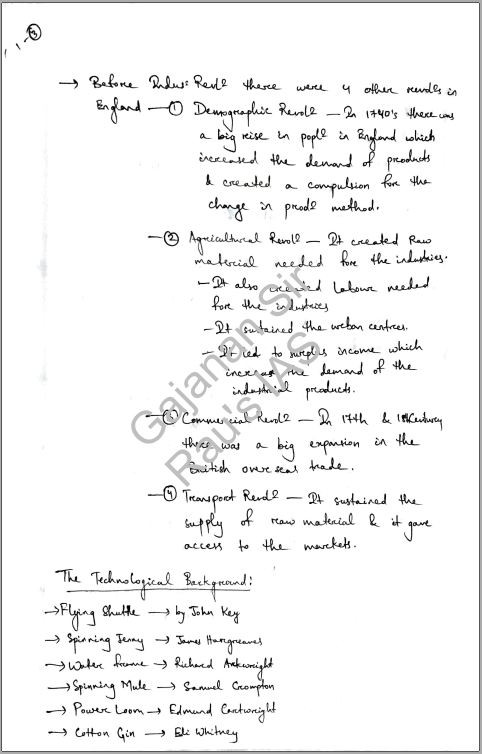 3
→ Before Indus: Revolⁿ there were 4 other revolⁿs in
England — ① Demographic Revolⁿ — In 1740's there was
a big rise in poplⁿ in England which
increased the demand of products
& created a compulsion for the
change in prodⁿ method.
— ② Agricultural Revolⁿ — It created Raw
material needed for the industries.
— It also created Labour needed
for the industries
— It sustained the urban centres.
— It led to surplus income which
increase the demand of the
industrial products.
— ③ Commercial Revolⁿ — In 17th & 18th Century
there was a big expansion in the
British overseas trade.
— ④ Transport Revolⁿ — It sustained the
supply of raw material & it gave
access to the markets.
Gajanan Sir
Rau's IAS
The Technological Background:
→ Flying Shuttle → by John Key
→ Spinning Jenny → James Hargreaves
→ Water frame → Richard Arkwright
→ Spinning Mule → Samuel Crompton
→ Power Loom → Edmund Cartwright
→ Cotton Gin → Eli Whitney